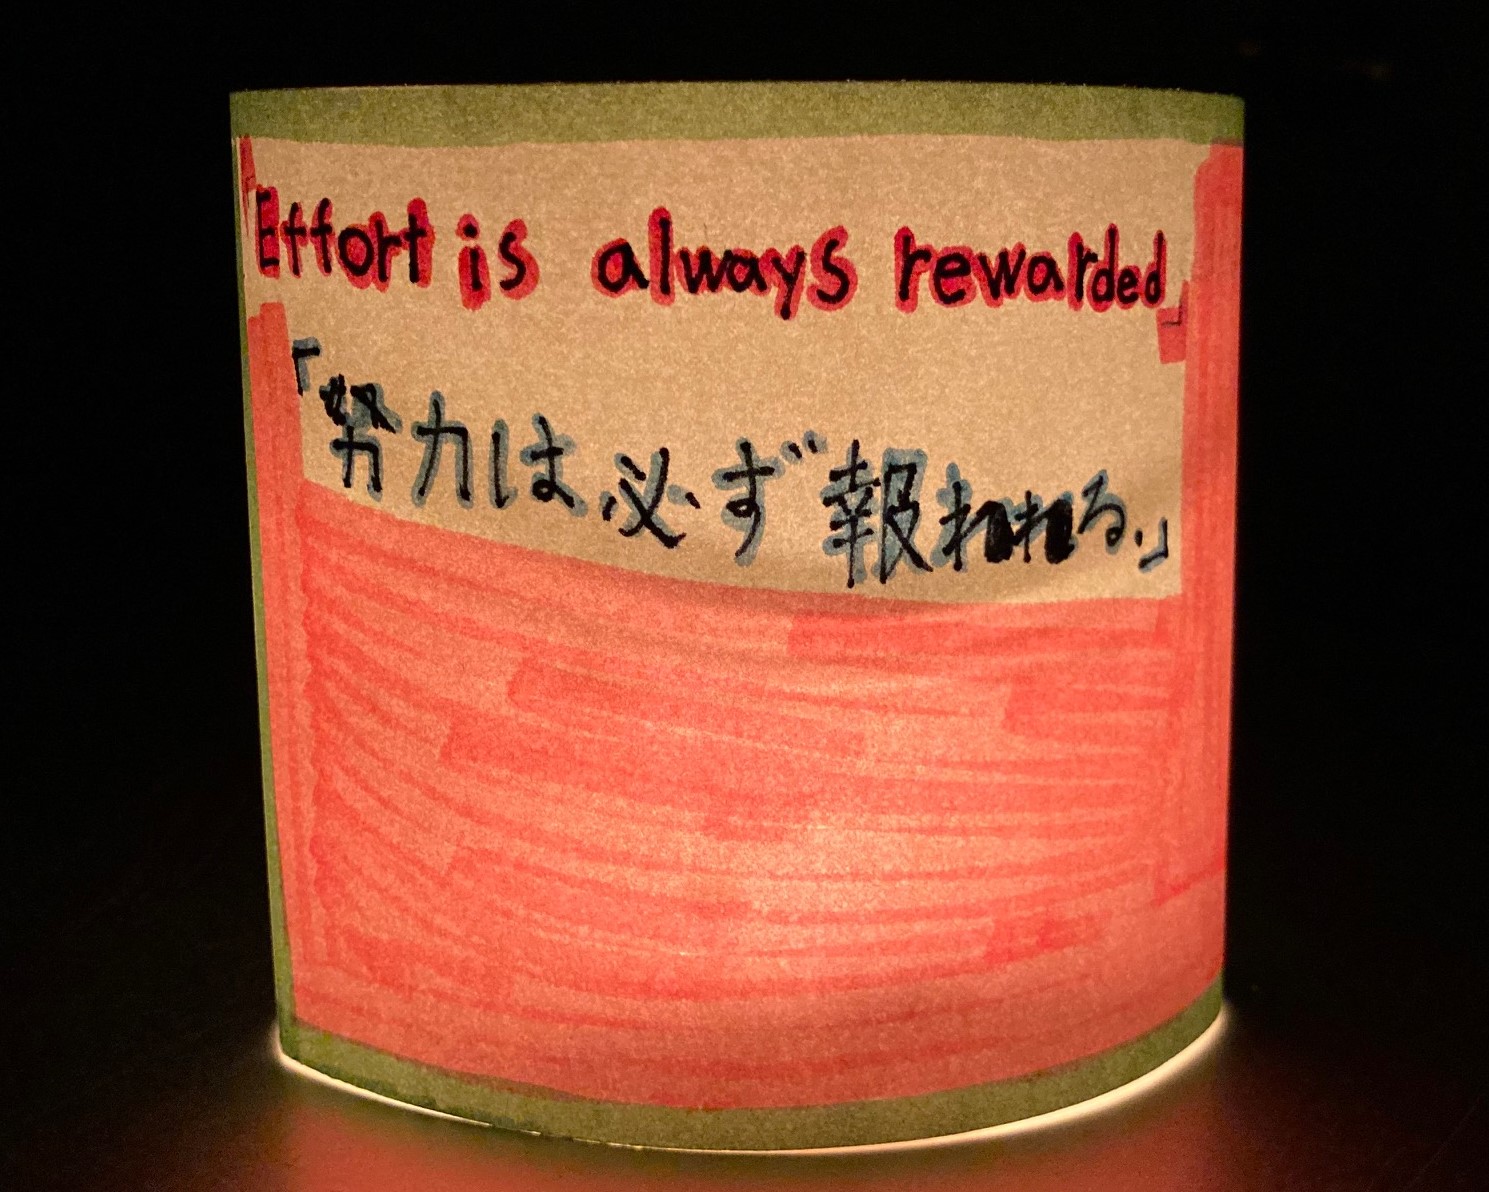 「Effort is always rewarded」
「努力は必ず報われる.」